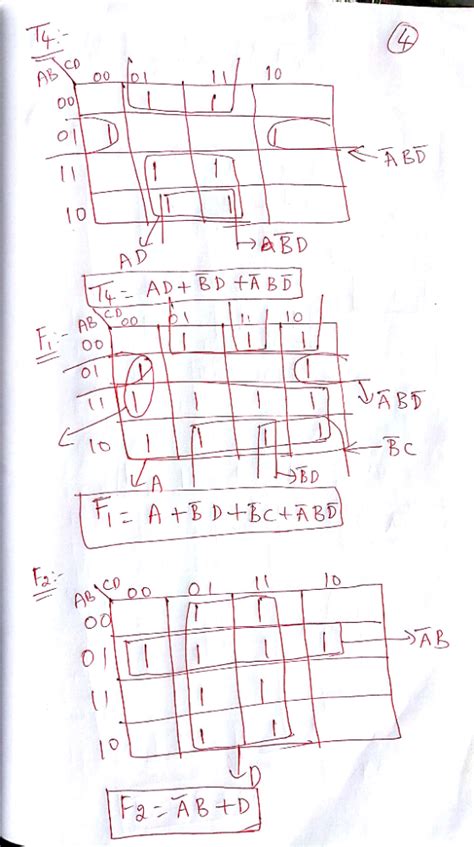 T4:-
4
AB CD 00 01 11 10
00 1 1
01 1 1
ĀBD̄
11 1 1
10 1 1
AD AB̄D
T4 = AD + B̄D + ĀBD̄
F1:- AB CD 00 01 11 10
00 1 1 1
01 1 1
11 1 1 1 1
ĀBD̄
10 1 1 1 1
B̄C
A B̄D
F1 = A + B̄D + B̄C + ĀBD̄
F2:-
AB CD 00 01 11 10
00 1 1
01 1 1 1 1 ĀB
11 1 1
10 1 1
D
F2 = ĀB + D